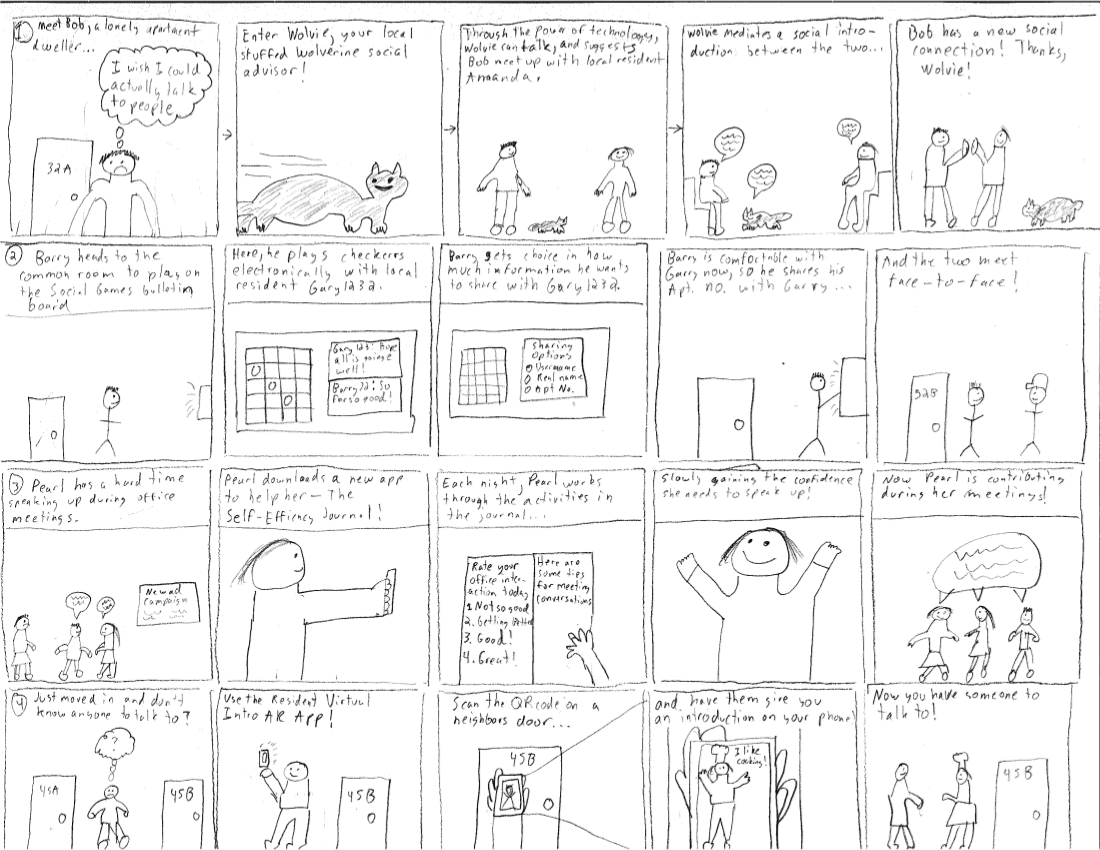 1 Meet Bob, a lonely apartment
dweller...
I wish I could
actually talk
to people
32A
Enter Wolvie, your local
stuffed wolverine social
advisor!
Through the power of technology,
Wolvie can talk, and suggests
Bob meet up with local resident
Amanda.
Wolvie mediates a social intro-
duction between the two...
Bob has a new social
connection! Thanks,
Wolvie!
2 Barry heads to the
common room to play on
the Social Games bulletin
board
Here, he plays checkers
electronically with local
resident Gary1232.
Gary123: Hope
all is going
well!
Barry32: So
far so good!
Barry gets choice in how
much information he wants
to share with Gary1232.
Sharing
Options
Username
Real name
Apt No.
Barry is comfortable with
Garry now, so he shares his
Apt. no. with Garry...
And the two meet
face-to-face!
52B
3 Pearl has a hard time
speaking up during office
meetings.
New ad
Campaign
Pearl downloads a new app
to help her - The
Self-Efficency Journal!
Each night, Pearl works
through the activities in
the journal...
Rate your
office inter-
action today
1. Not so good
2. Getting Better
3. Good!
4. Great!
Here are
some tips
for meeting
conversations
Slowly gaining the confidence
she needs to speak up!
Now Pearl is contributing
during her meetings!
4 Just moved in and don't
know anyone to talk to?
?
45A
45B
Use the Resident Virtual
Intro AR App!
45B
Scan the QR code on a
neighbors door...
45B
and have them give you
an introduction on your phone!
I like
cooking!
Now you have someone to
talk to!
45B